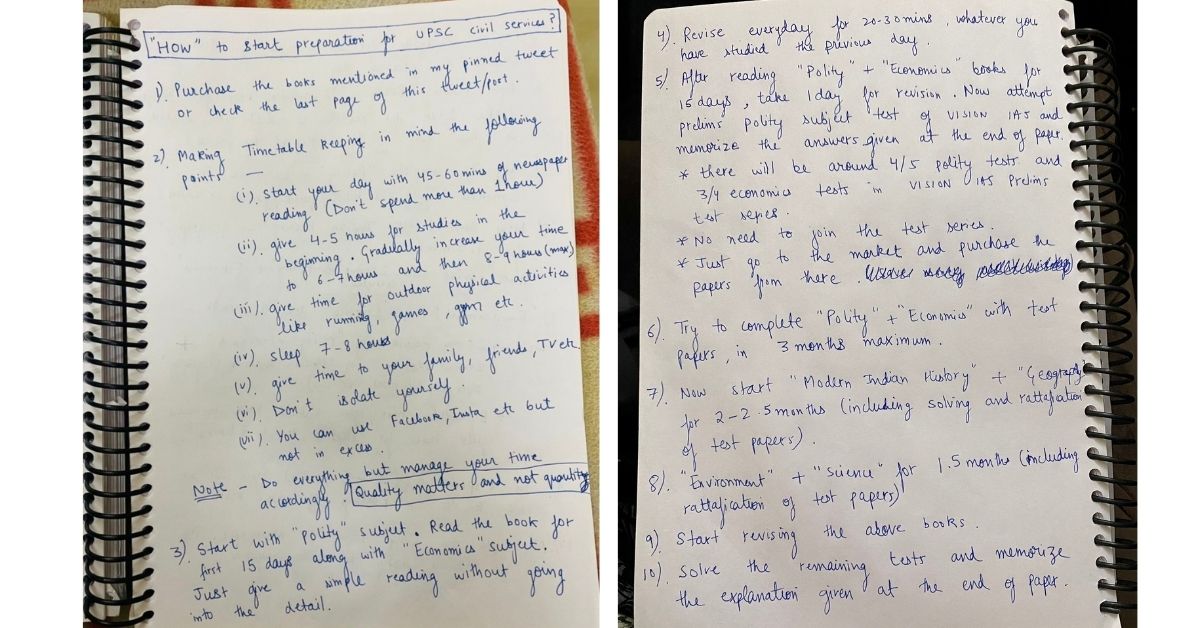 "HOW" to start preparation for UPSC civil services?
1). Purchase the books mentioned in my pinned tweet
or check the last page of this tweet/post.
2). Making Timetable keeping in mind the following
points —
(i). Start your day with 45-60 mins of newspaper
reading (Don't spend more than 1 hour)
(ii). give 4-5 hours for studies in the
beginning. Gradually increase your time
to 6-7 hours and then 8-9 hours (max)
(iii). give time for outdoor physical activities
like running, games, gym etc.
(iv). sleep 7-8 hours
(v). give time to your family, friends, TV etc.
(vi). Don't isolate yourself.
(vii). You can use Facebook, Insta etc but
not in excess.
Note - Do everything but manage your time
accordingly. Quality matters and not quantity
3) Start with "Polity" subject. Read the book for
first 15 days along with "Economics" subject.
Just give a simple reading without going
into the detail.
4). Revise everyday for 20-30 mins, whatever you
have studied the previous day.
5). After reading "Polity" + "Economics" books for
15 days, take 1 day for revision. Now attempt
prelims polity subject test of VISION IAS and
memorize the answers given at the end of paper.
* there will be around 4/5 polity tests and
3/4 economics tests in VISION IAS Prelims
test series.
* No need to join the test series.
* Just go to the market and purchase the
papers from there.
6). Try to complete "Polity" + "Economics" with test
papers, in 3 months maximum.
7). Now start "Modern Indian History" + "Geography"
for 2-2.5 months (including solving and rattafication
of test papers).
8). "Environment" + "Science" for 1.5 months (including
rattafication of test papers)
9). Start revising the above books.
10). Solve the remaining tests and memorize
the explanation given at the end of paper.